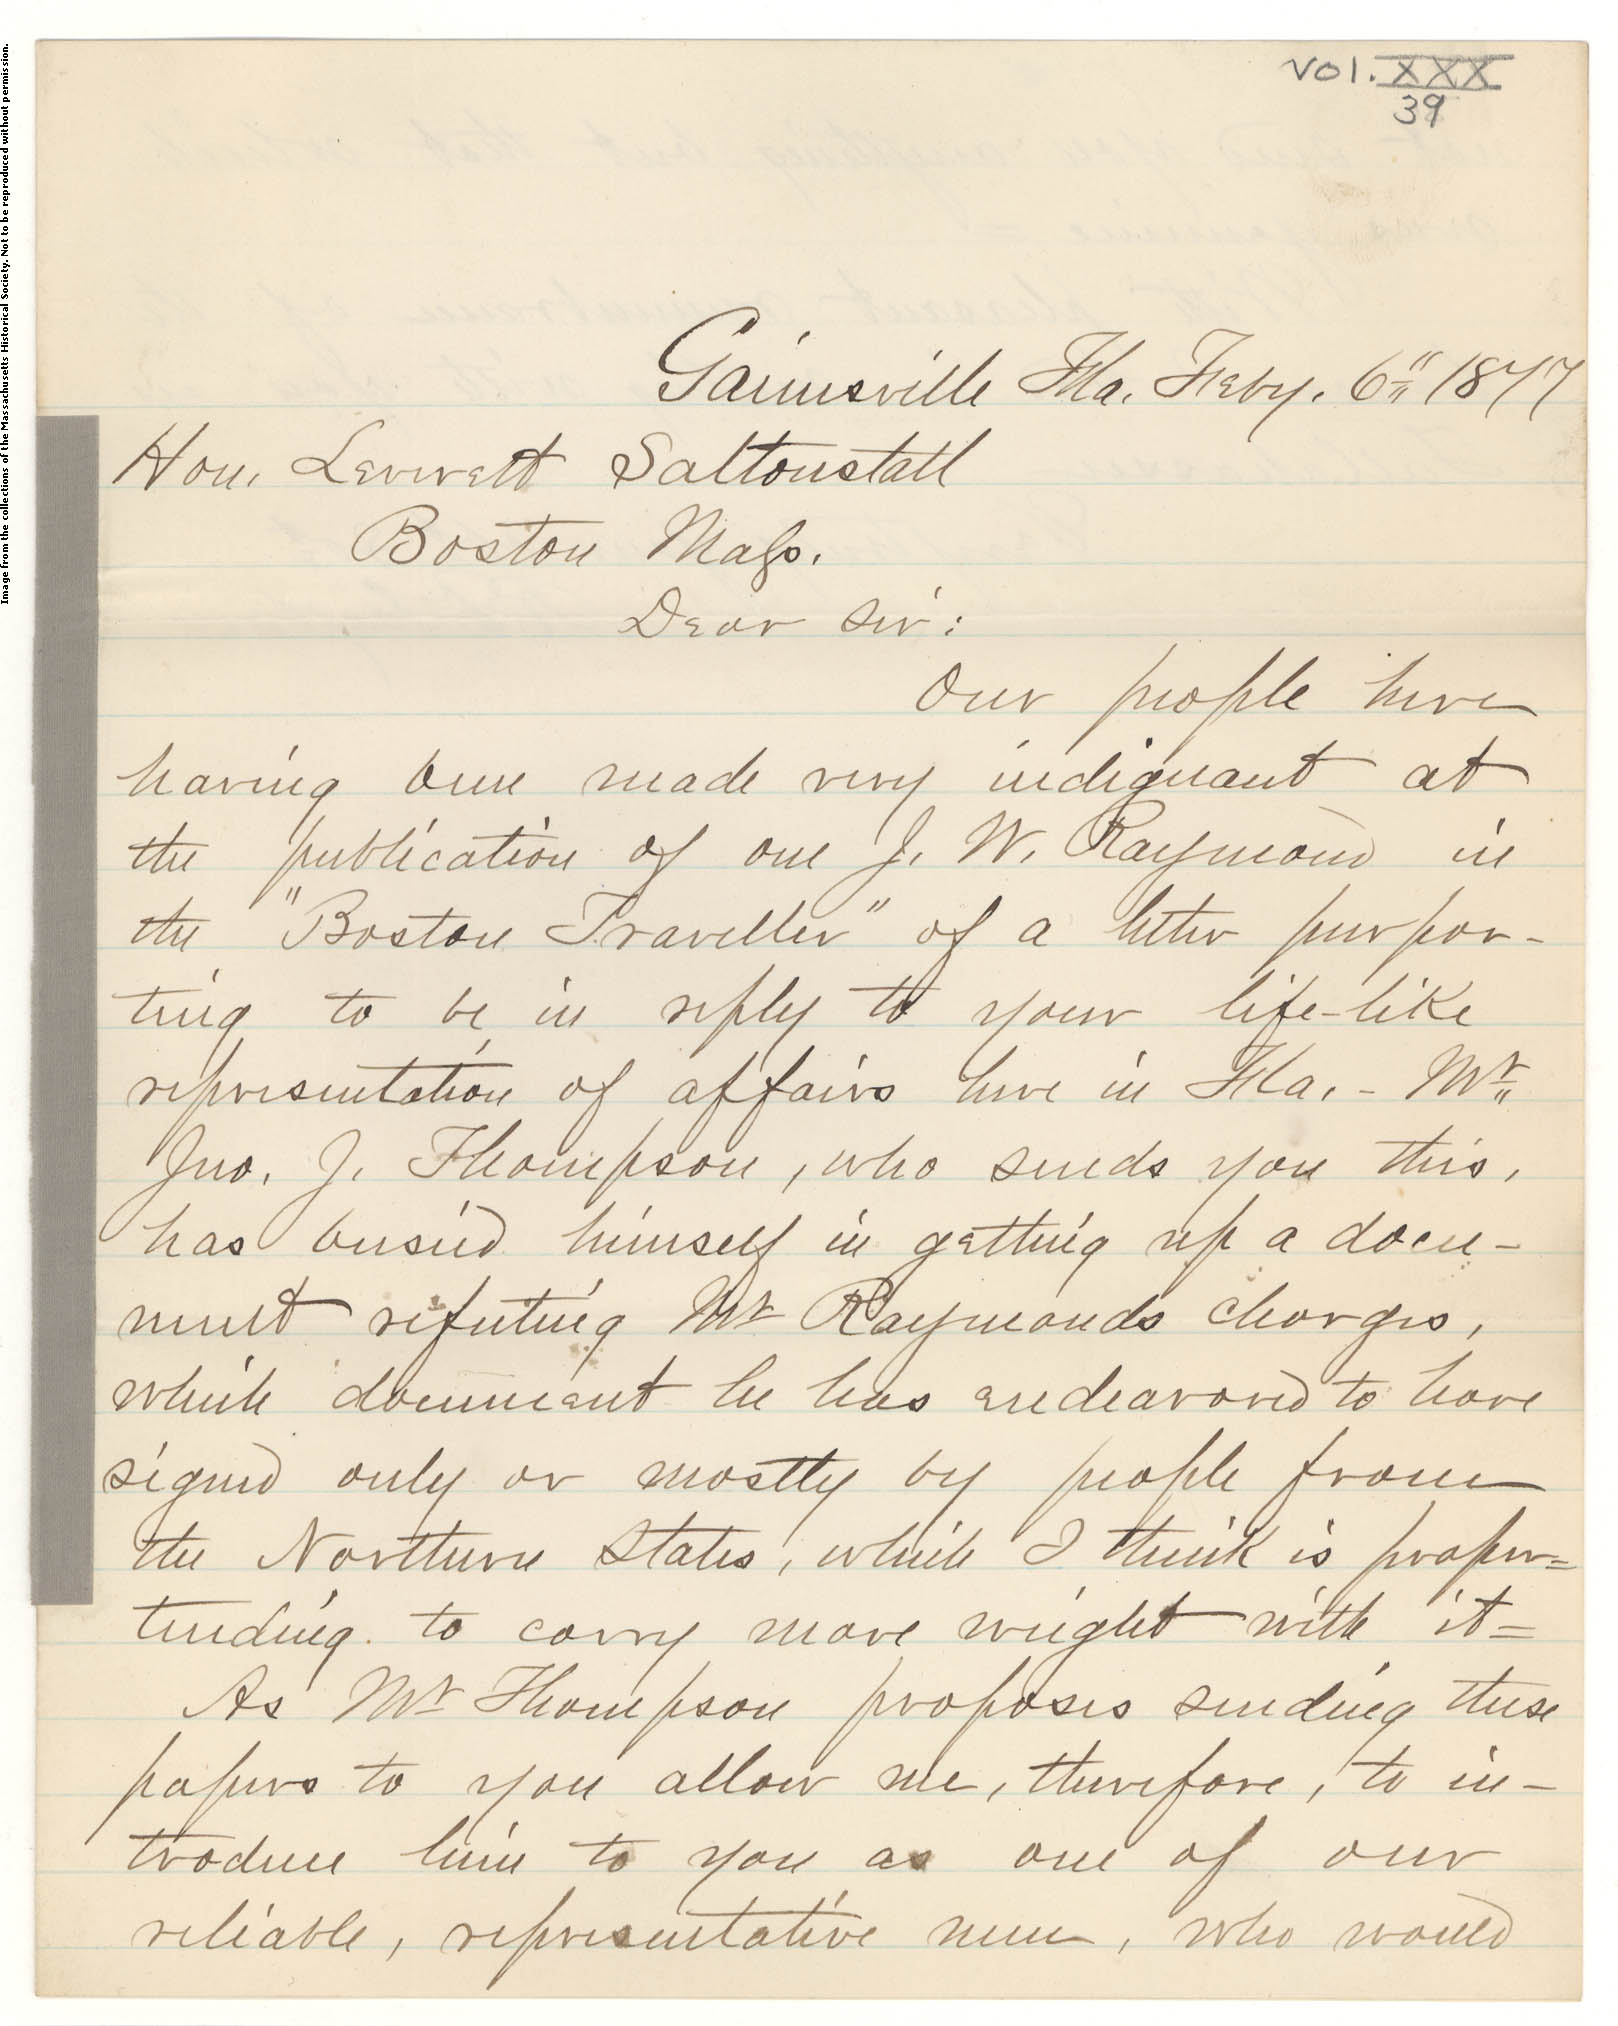 Image from the collections of the Massachusetts Historical Society. Not to be reproduced without permission.
Vol. XXX
39
Gainsville Fla. Feby. 6" 1877
Hon. Leverett Saltonstall
Boston Mass.
Dear Sir:
Our people here
having been made very indignant at
the publication of one J. W. Raymond in
the "Boston Traveller" of a letter purpor-
ting to be in reply to your life-like
representation of affairs here in Fla. - Mr.
Jno. J. Thompson, who sends you this,
has busied himself in getting up a docu-
ment refuting Mr Raymonds charges,
which document he has endeavored to have
signed only or mostly by people from
the Northern States, which I think is proper=
tending to carry more weight with it=
As Mr Thompson proposes sending these
papers to you allow me, therefore, to in-
troduce him to you as one of our
reliable, representative men, who would